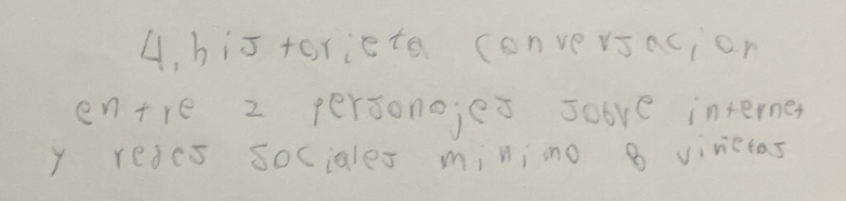 4. historieta conversacion
entre 2 personajes sobre internet
y redes sociales minimo 8 viñetas